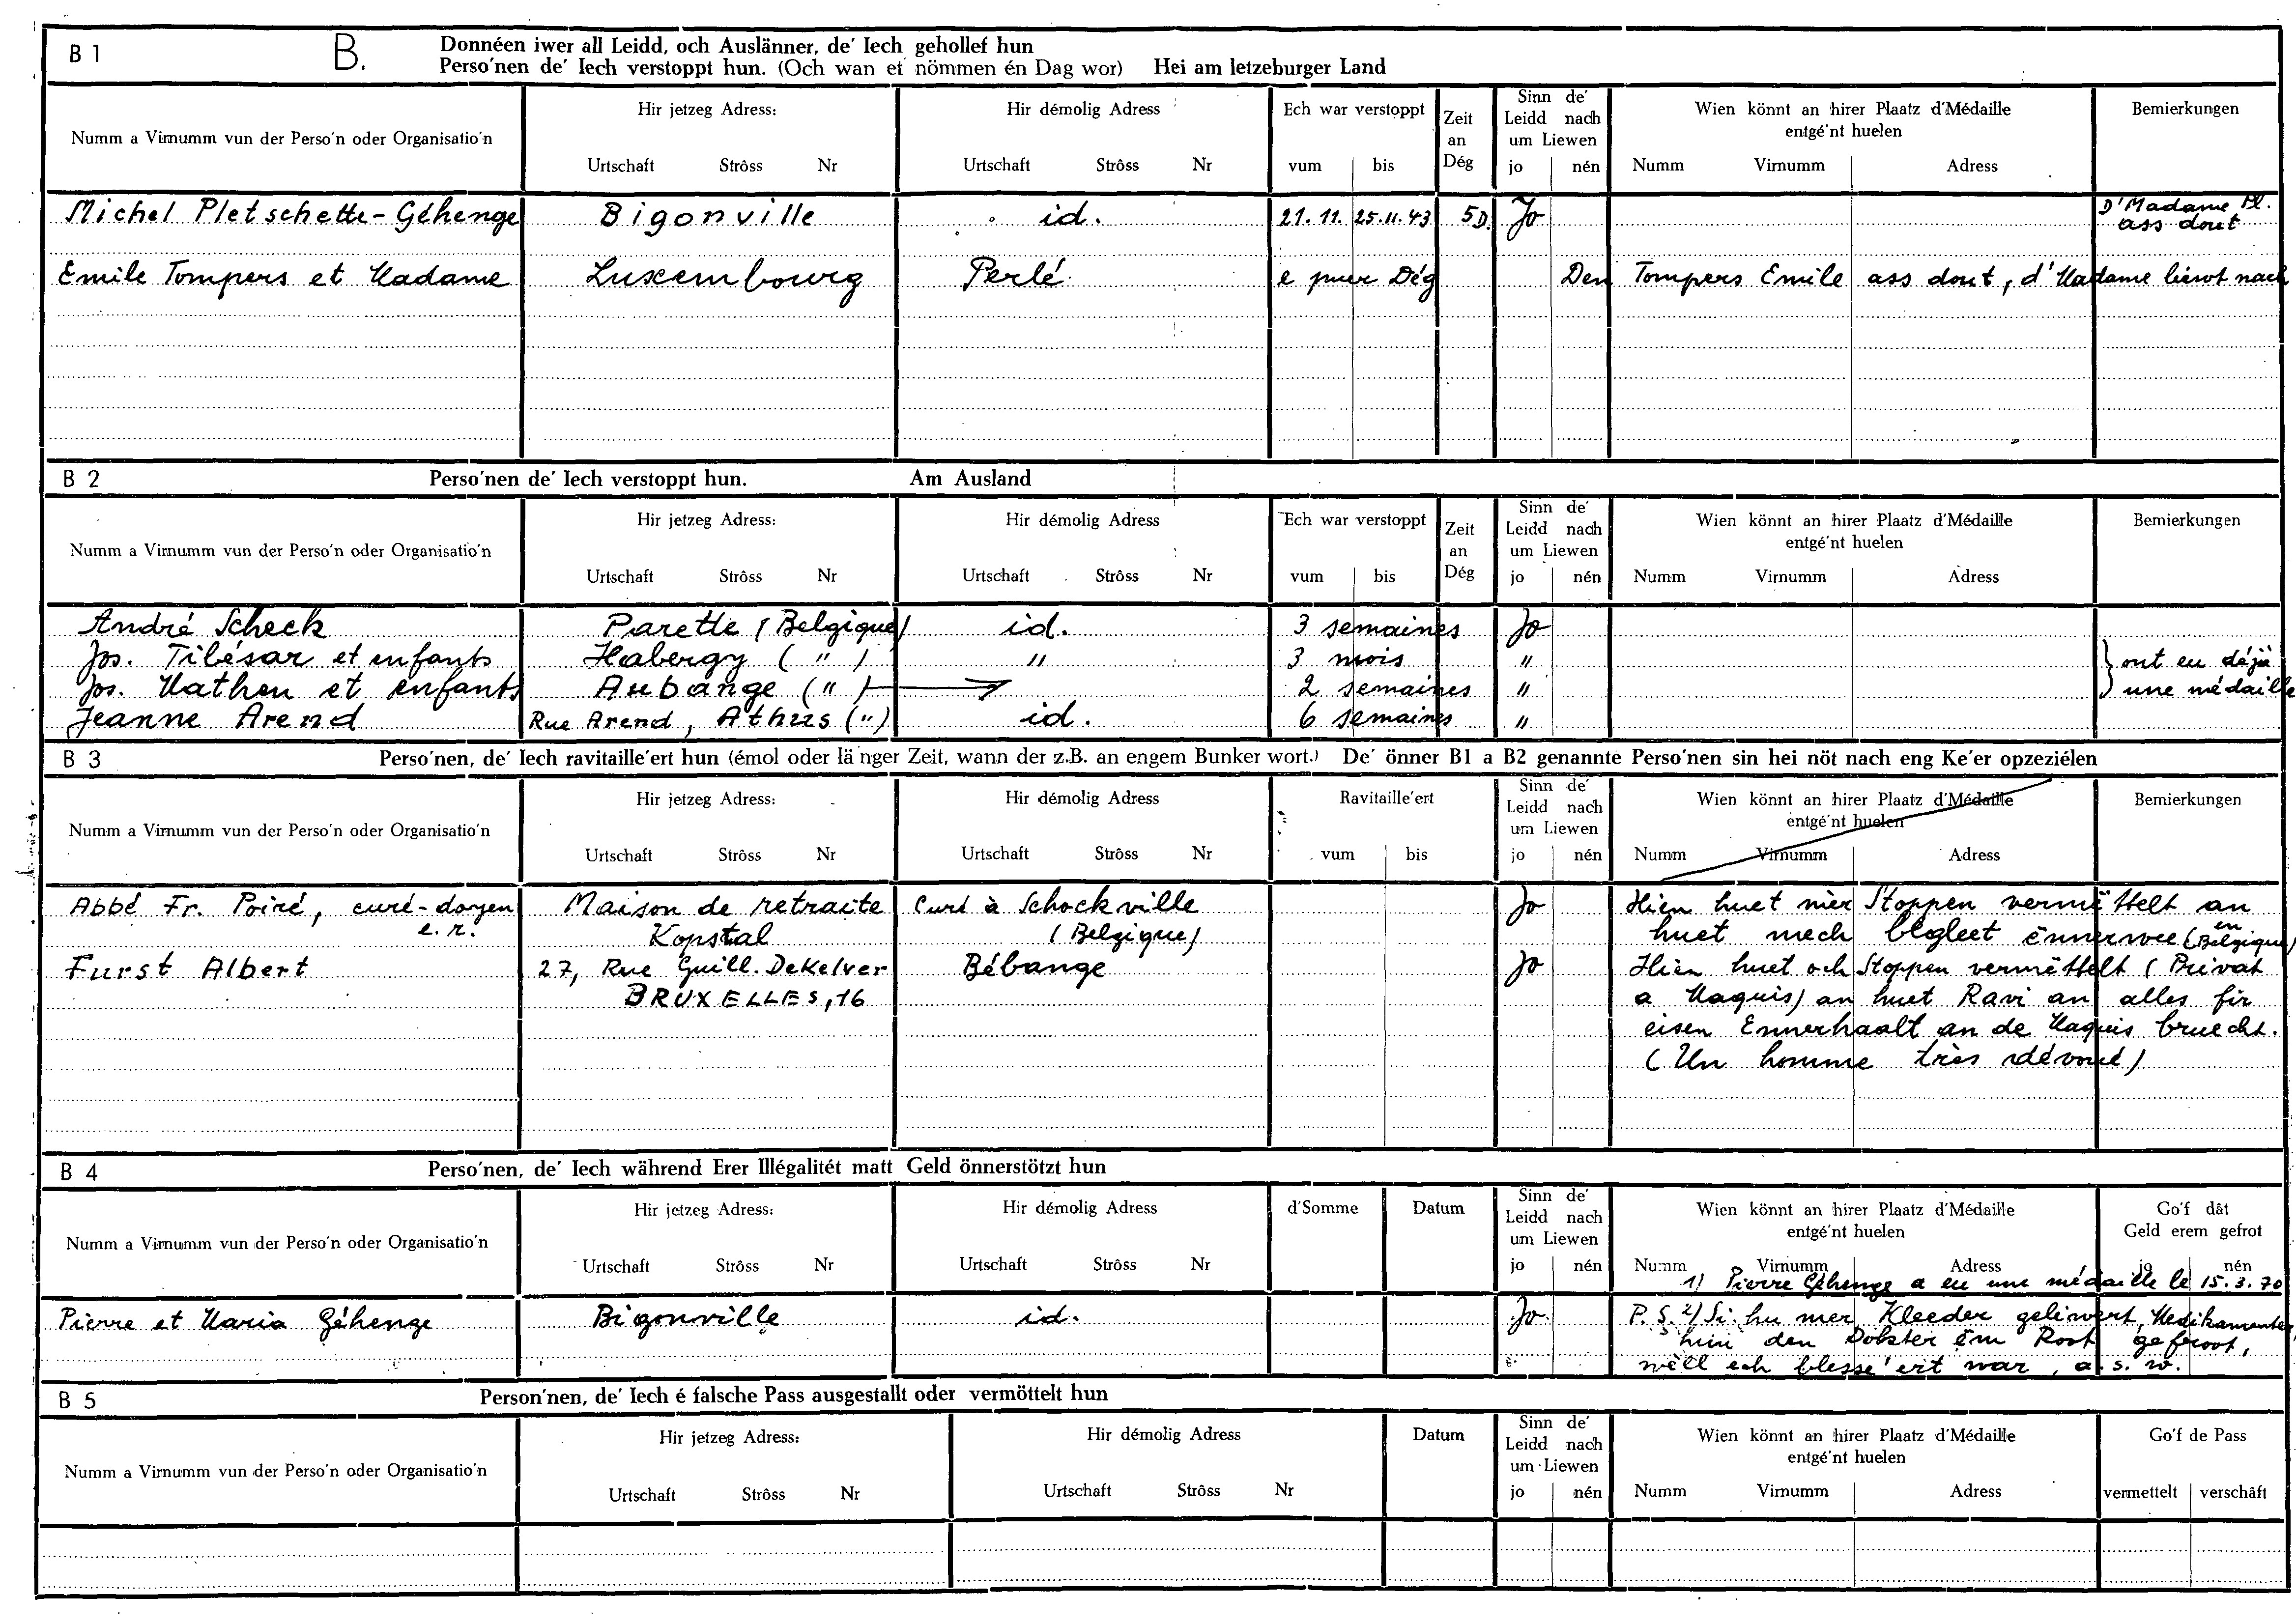 B 1 B. Donnéen iwer all Leidd, och Auslänner, de' Iech gehollef hun
Perso'nen de' Iech verstoppt hun. (Och wan et nömmen én Dag wor) Hei am letzeburger Land
Numm a Virnumm vun der Perso'n oder Organisatio'n
Hir jetzeg Adress:
Urtschaft Strôss Nr
Hir démolig Adress
Urtschaft Strôss Nr
Ech war verstoppt
vum bis
Zeit
an
Dég
Sinn de'
Leidd nach
um Liewen
jo nén
Wien könnt an hirer Plaatz d'Médaille
entgé'nt huelen
Numm Virnumm Adress
Bemierkungen
Michel Pletschette-Géhenge Bigonville id. 21.11. 25.11.43 5D. Jo D'Madame Pl.
ass dout
Emile Tompers et Madame Luxembourg Perlé e puer Dég Den Tompers Emile ass dout, d'Madame liewt nach
B 2 Perso'nen de' Iech verstoppt hun. Am Ausland
Numm a Virnumm vun der Perso'n oder Organisatio'n
Hir jetzeg Adress:
Urtschaft Strôss Nr
Hir démolig Adress
Urtschaft Strôss Nr
Ech war verstoppt
vum bis
Zeit
an
Dég
Sinn de'
Leidd nach
um Liewen
jo nén
Wien könnt an hirer Plaatz d'Médaille
entgé'nt huelen
Numm Virnumm Adress
Bemierkungen
André Scheck Parette (Belgique) id. 3 semaines Jo
Jos. Tibésar et enfants Habergy ( " ) " 3 mois " ont eu déjà
Jos. Mathen et enfants Aubange ( " ) 2 semaines " une médaille
Jeanne Arend Rue Arend, Athus (") id. 6 semaines "
B 3 Perso'nen, de' Iech ravitaille'ert hun (émol oder länger Zeit, wann der z.B. an engem Bunker wort.) De' önner B1 a B2 genannte Perso'nen sin hei nöt nach eng Ke'er opzeziélen
Numm a Virnumm vun der Perso'n oder Organisatio'n
Hir jetzeg Adress:
Urtschaft Strôss Nr
Hir démolig Adress
Urtschaft Strôss Nr
Ravitaille'ert
vum bis
Sinn de'
Leidd nach
um Liewen
jo nén
Wien könnt an hirer Plaatz d'Médaille
entgé'nt huelen
Numm Virnumm Adress
Bemierkungen
Abbé Fr. Poiré, curé-doyen Maison de retraite Curé à Schockville Jo Hien huet mer Stoppen vermëttelt an
e.r. Kopstal (Belgique) huet mech begleet ënnerwee (en Belgique)
Furst Albert 27, Rue Guill. DeKelver Bébange Jo Hien huet och Stoppen vermëttelt (Privat
BRUXELLES, 16 a Maquis) an huet Ravi an alles fir
eisen Ennerhaalt an de Maquis bruecht.
(Un homme très dévoué)
B 4 Perso'nen, de' Iech während Erer Illégalitét matt Geld önnerstötzt hun
Numm a Virnumm vun der Perso'n oder Organisatio'n
Hir jetzeg Adress:
Urtschaft Strôss Nr
Hir démolig Adress
Urtschaft Strôss Nr
d'Somme
Datum
Sinn de'
Leidd nach
um Liewen
jo nén
Wien könnt an hirer Plaatz d'Médaille
entgé'nt huelen
Numm Virnumm Adress
Go'f dât
Geld erem gefrot
jo nén
1) Pierre Géhenge a eu une médaille le 15.3.70
Pierre et Maria Géhenge Bigonville id. Jo P.S. 2) Si hu mer Kleeder geliwert, Medikamenter,
hun den Dokter ëm Rot gefroot,
wëll ech blesse'ert war, a.s.w.
B 5 Person'nen, de' Iech é falsche Pass ausgestallt oder vermöttelt hun
Numm a Virnumm vun der Perso'n oder Organisatio'n
Hir jetzeg Adress:
Urtschaft Strôss Nr
Hir démolig Adress
Urtschaft Strôss Nr
Datum
Sinn de'
Leidd nach
um Liewen
jo nén
Wien könnt an hirer Plaatz d'Médaille
entgé'nt huelen
Numm Virnumm Adress
Go'f de Pass
vermettelt verschâft